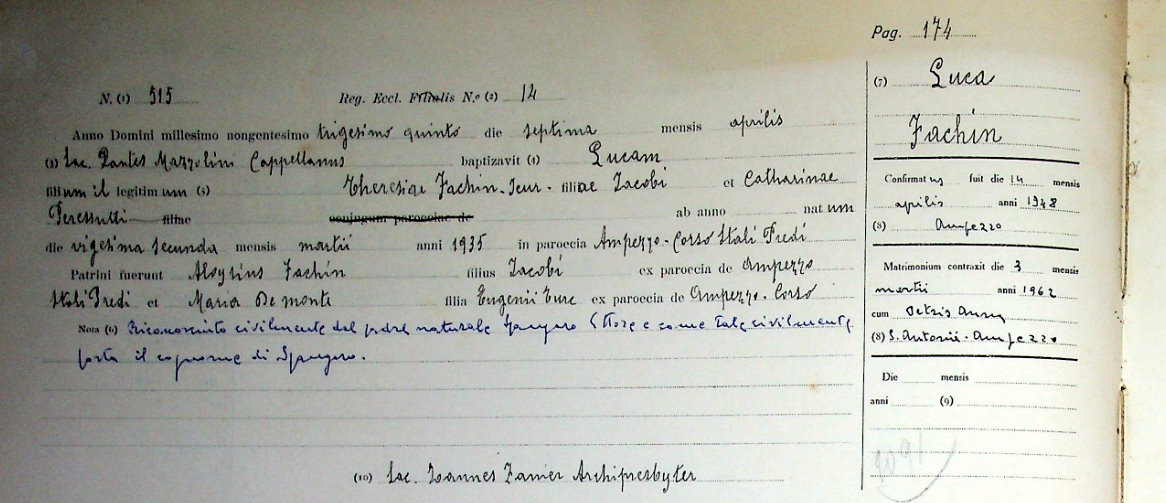 Pag. 174
N. (1) 515 Reg. Eccl. Filialis N.o (2) 14
Anno Domini millesimo nongentesimo trigesimo quinto die septima mensis aprilis
(3) Sac. Dantes Mazzolini Cappellanus baptizavit (4) Lucam
filium il legitimum (5) Theresiae Fachin filiae Jacobi et Catharinae
filiae coniugum paroeciae de ab anno natum
die vigesima secunda mensis martii anni 1935 in paroecia Ampezzo - Corso Stali Fredi
Patrini fuerunt Aloysius Fachin filius Jacobi ex paroecia de Ampezzo
Stali Fredi et Maria De monte filia Eugenii ex paroecia de Ampezzo - Corso
Nota (6) Riconosciuto civilmente dal padre naturale Spangaro Ettore e come tale civilmente
porta il cognome di Spangaro.
(10) Sac. Joannes Zanier Archipresbyter
(7) Luca
Fachin
Confirmatus fuit die 14 mensis
aprilis anni 1948
(8) Ampezzo
Matrimonium contraxit die 3 mensis
martii anni 1962
cum
(8) S. Antonii - Ampezzo
Die mensis
anni (9)